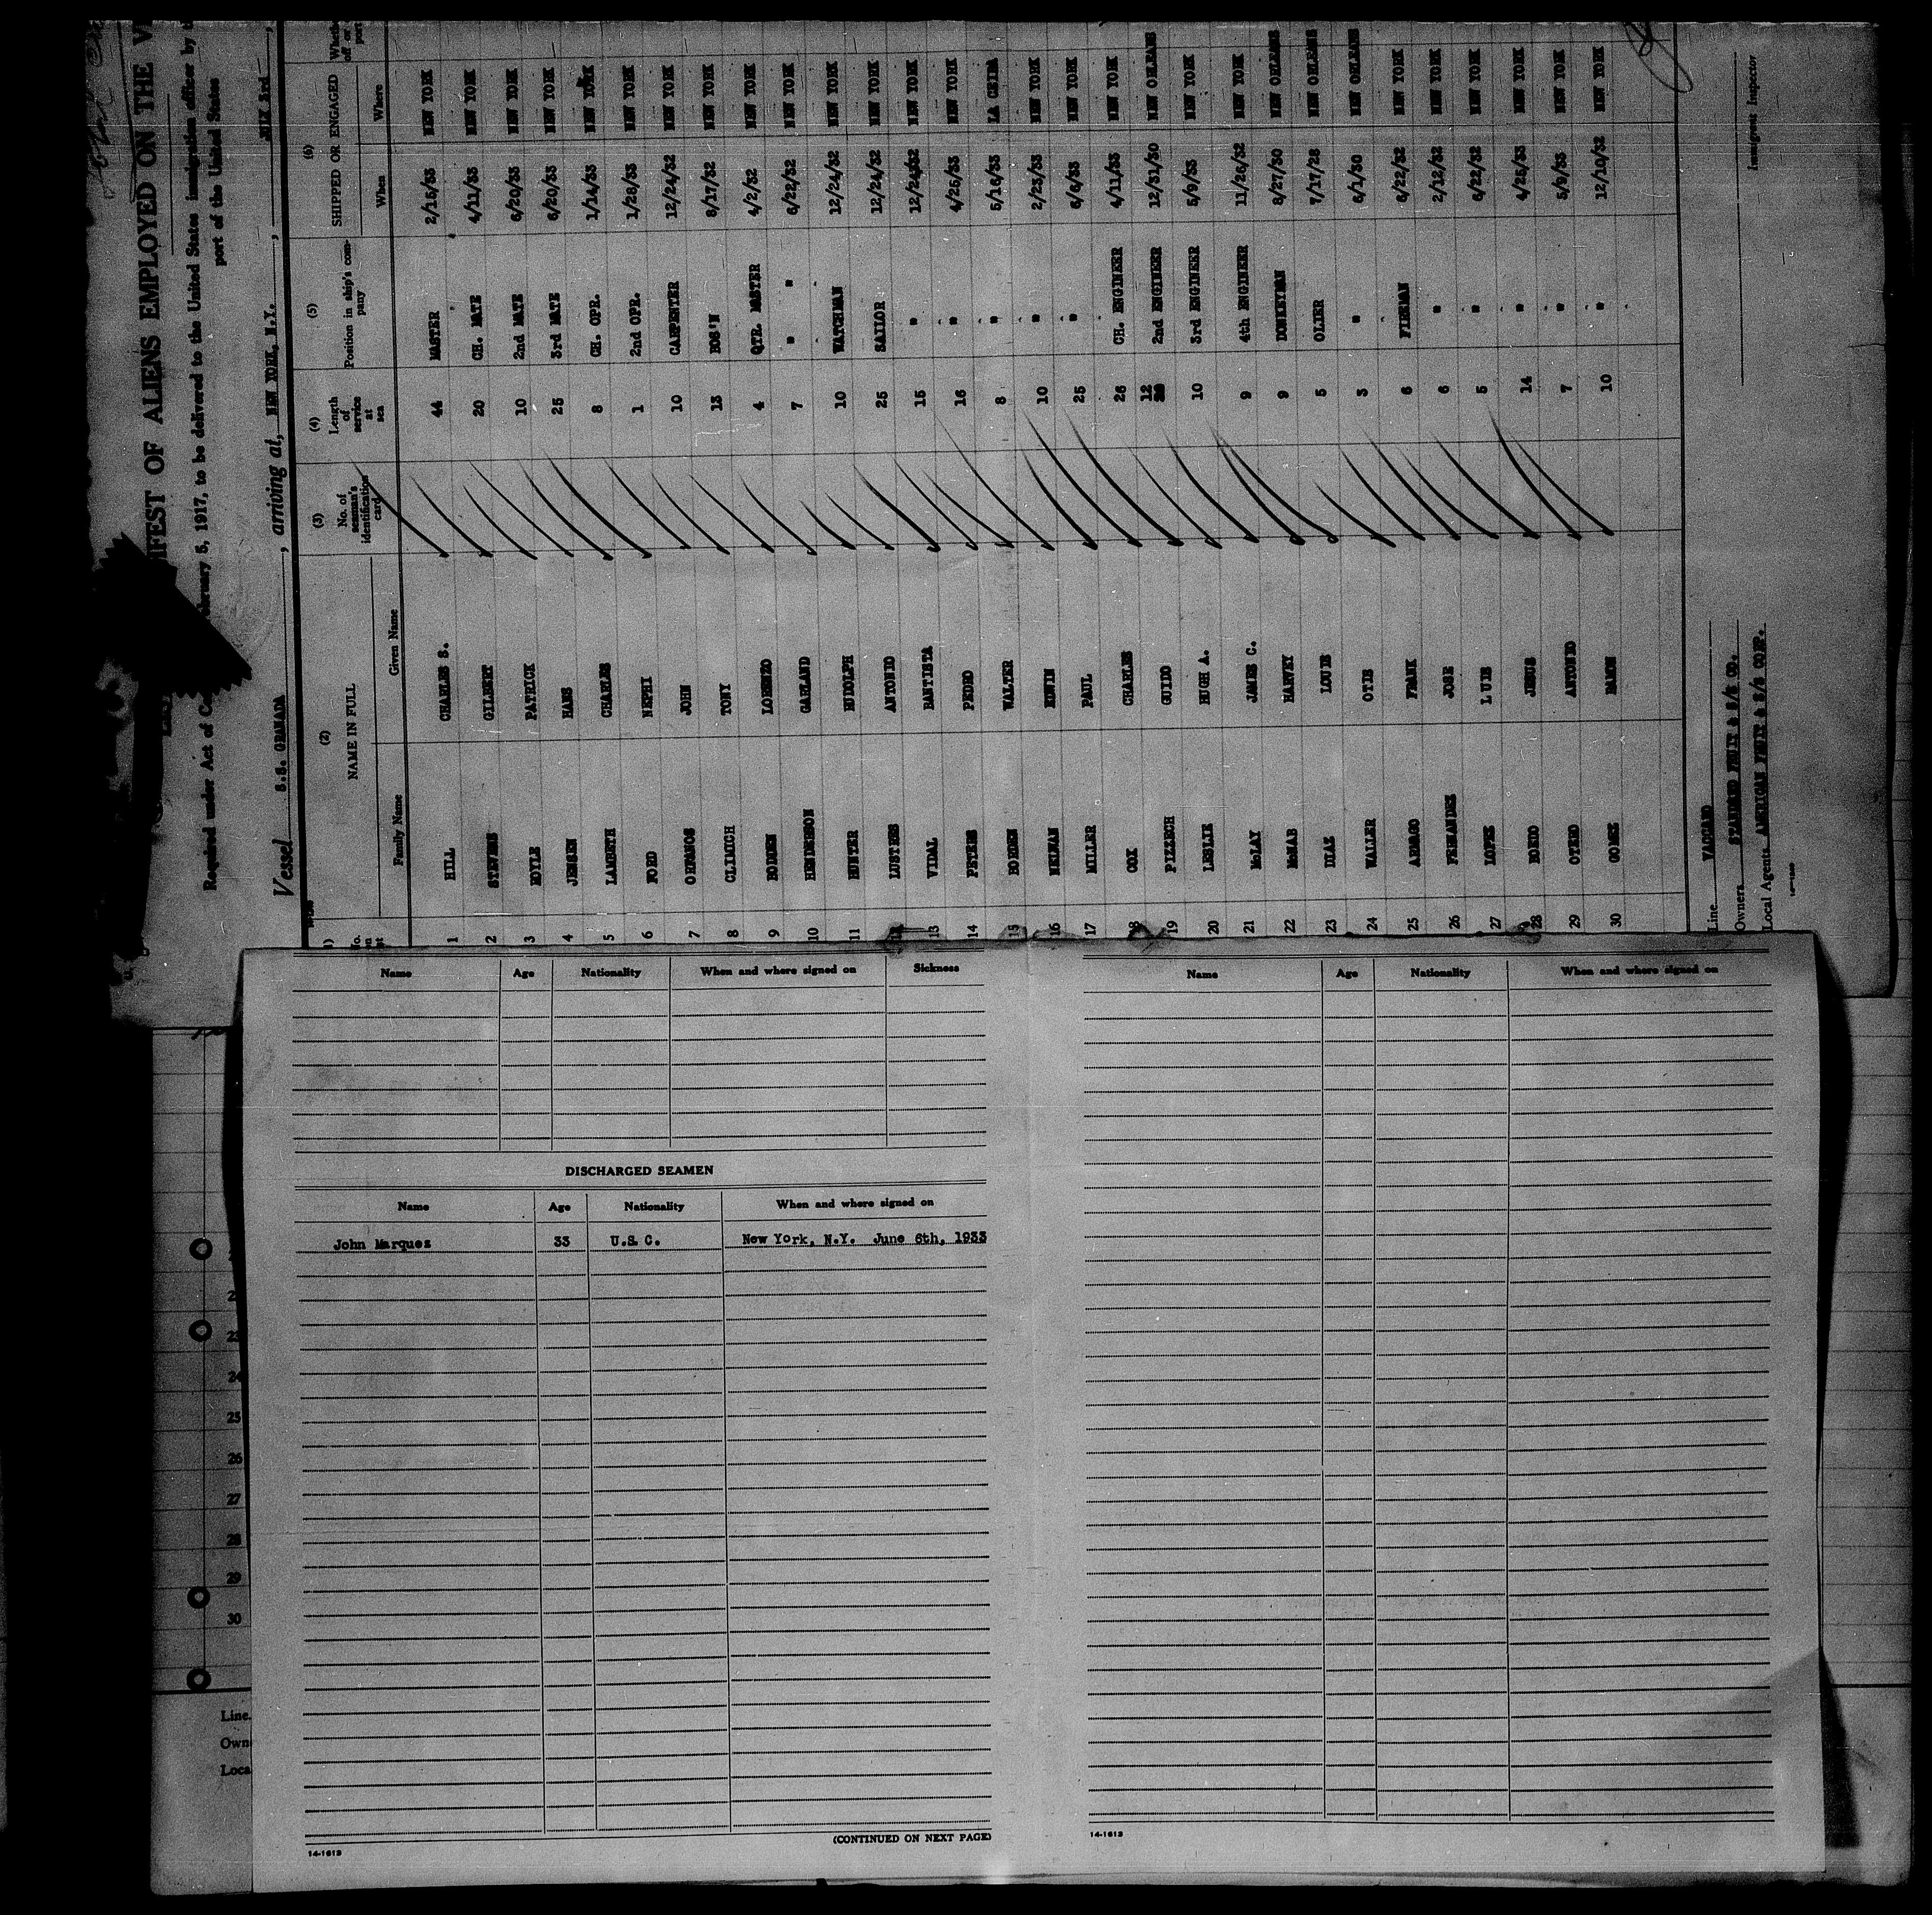 IFEST OF ALIENS EMPLOYED ON THE V
Required under Act of Co bruary 5, 1917, to be delivered to the United States immigration officer by t
port of the United States
Vessel S.S. GRANADA, arriving at, NEW YORK, N.Y., JULY 3rd
(2) (3) (4) (5) (6)
NAME IN FULL No. of seaman's identification card Length of service at sea Position in ship's company SHIPPED OR ENGAGED
Family Name Given Name When Where
1 HILL CHARLES S. 44 MASTER 2/15/33 NEW YORK
2 STEVENS GILBERT 20 CH. MATE 4/11/33 NEW YORK
3 HOYLE PATRICK 10 2nd MATE 6/20/33 NEW YORK
4 JENSEN HANS 25 3rd MATE 6/20/33 NEW YORK
5 LAMBETH CHARLES 8 CH. OPR. 1/14/33 NEW YORK
6 FORD NEPHI 1 2nd OPR. 1/28/33 NEW YORK
7 ORFANOS JOHN 10 CARPENTER 12/24/32 NEW YORK
8 CLIMICH TONY 13 BOS'N 8/17/32 NEW YORK
9 BODDEN LORENZO 4 QTR. MASTER 4/2/32 NEW YORK
10 HENDERSON GARLAND 7 " " 6/22/32 NEW YORK
11 HUNTER RUDOLPH 10 WATCHMAN 12/24/32 NEW YORK
12 LUSTRES ANTONIO 25 SAILOR 12/24/32 NEW YORK
13 VIDAL BANTISTA 15 " 12/24/32 NEW YORK
14 PETERS PEDRO 16 " 4/25/33 NEW YORK
15 BORDEN WALTER 8 " 5/16/33 LA CEIBA
16 NEIMAN EDWIN 10 " 2/23/33 NEW YORK
17 MILLER PAUL 25 " 6/6/33 NEW YORK
18 COX CHARLES 26 CH. ENGINEER 4/11/33 NEW YORK
19 PIZZECH GUIDO 12 2nd ENGINEER 12/31/30 NEW ORLEANS
20 LESLIE HUGH A. 10 3rd ENGINEER 5/9/33 NEW YORK
21 McLAY JAMES C. 9 4th ENGINEER 11/26/32 NEW YORK
22 McNAB HARVEY 9 DONKEYMAN 8/27/30 NEW ORLEANS
23 DIAZ LOUIS 5 OLIER 7/17/28 NEW ORLEANS
24 WALLER OTIS 3 " 6/1/30 NEW ORLEANS
25 ARRAGO FRANK 6 FIREMAN 6/22/32 NEW YORK
26 FERNANDEZ JOSE 6 " 2/12/32 NEW YORK
27 LOPEZ LUIS 5 " 6/22/32 NEW YORK
28 JESUS 14 " 4/25/33 NEW YORK
29 OTERO ANTONIO 7 " 5/9/33 NEW YORK
30 GOMEZ RAMON 10 " 12/10/32 NEW YORK
Line VACCARO
Owners STANDARD FRUIT & S/S CO.
Local Agents AMERICAN FRUIT & S/S CORP.
Immigrant Inspector
Name Age Nationality When and where signed on Sickness
DISCHARGED SEAMEN
Name Age Nationality When and where signed on
John Marquez 33 U.S.C. New York, N.Y. June 6th, 1933
(CONTINUED ON NEXT PAGE)
14-1613
Name Age Nationality When and where signed on
14-1613
23
24
25
26
27
28
29
30
Line
Own
Loca